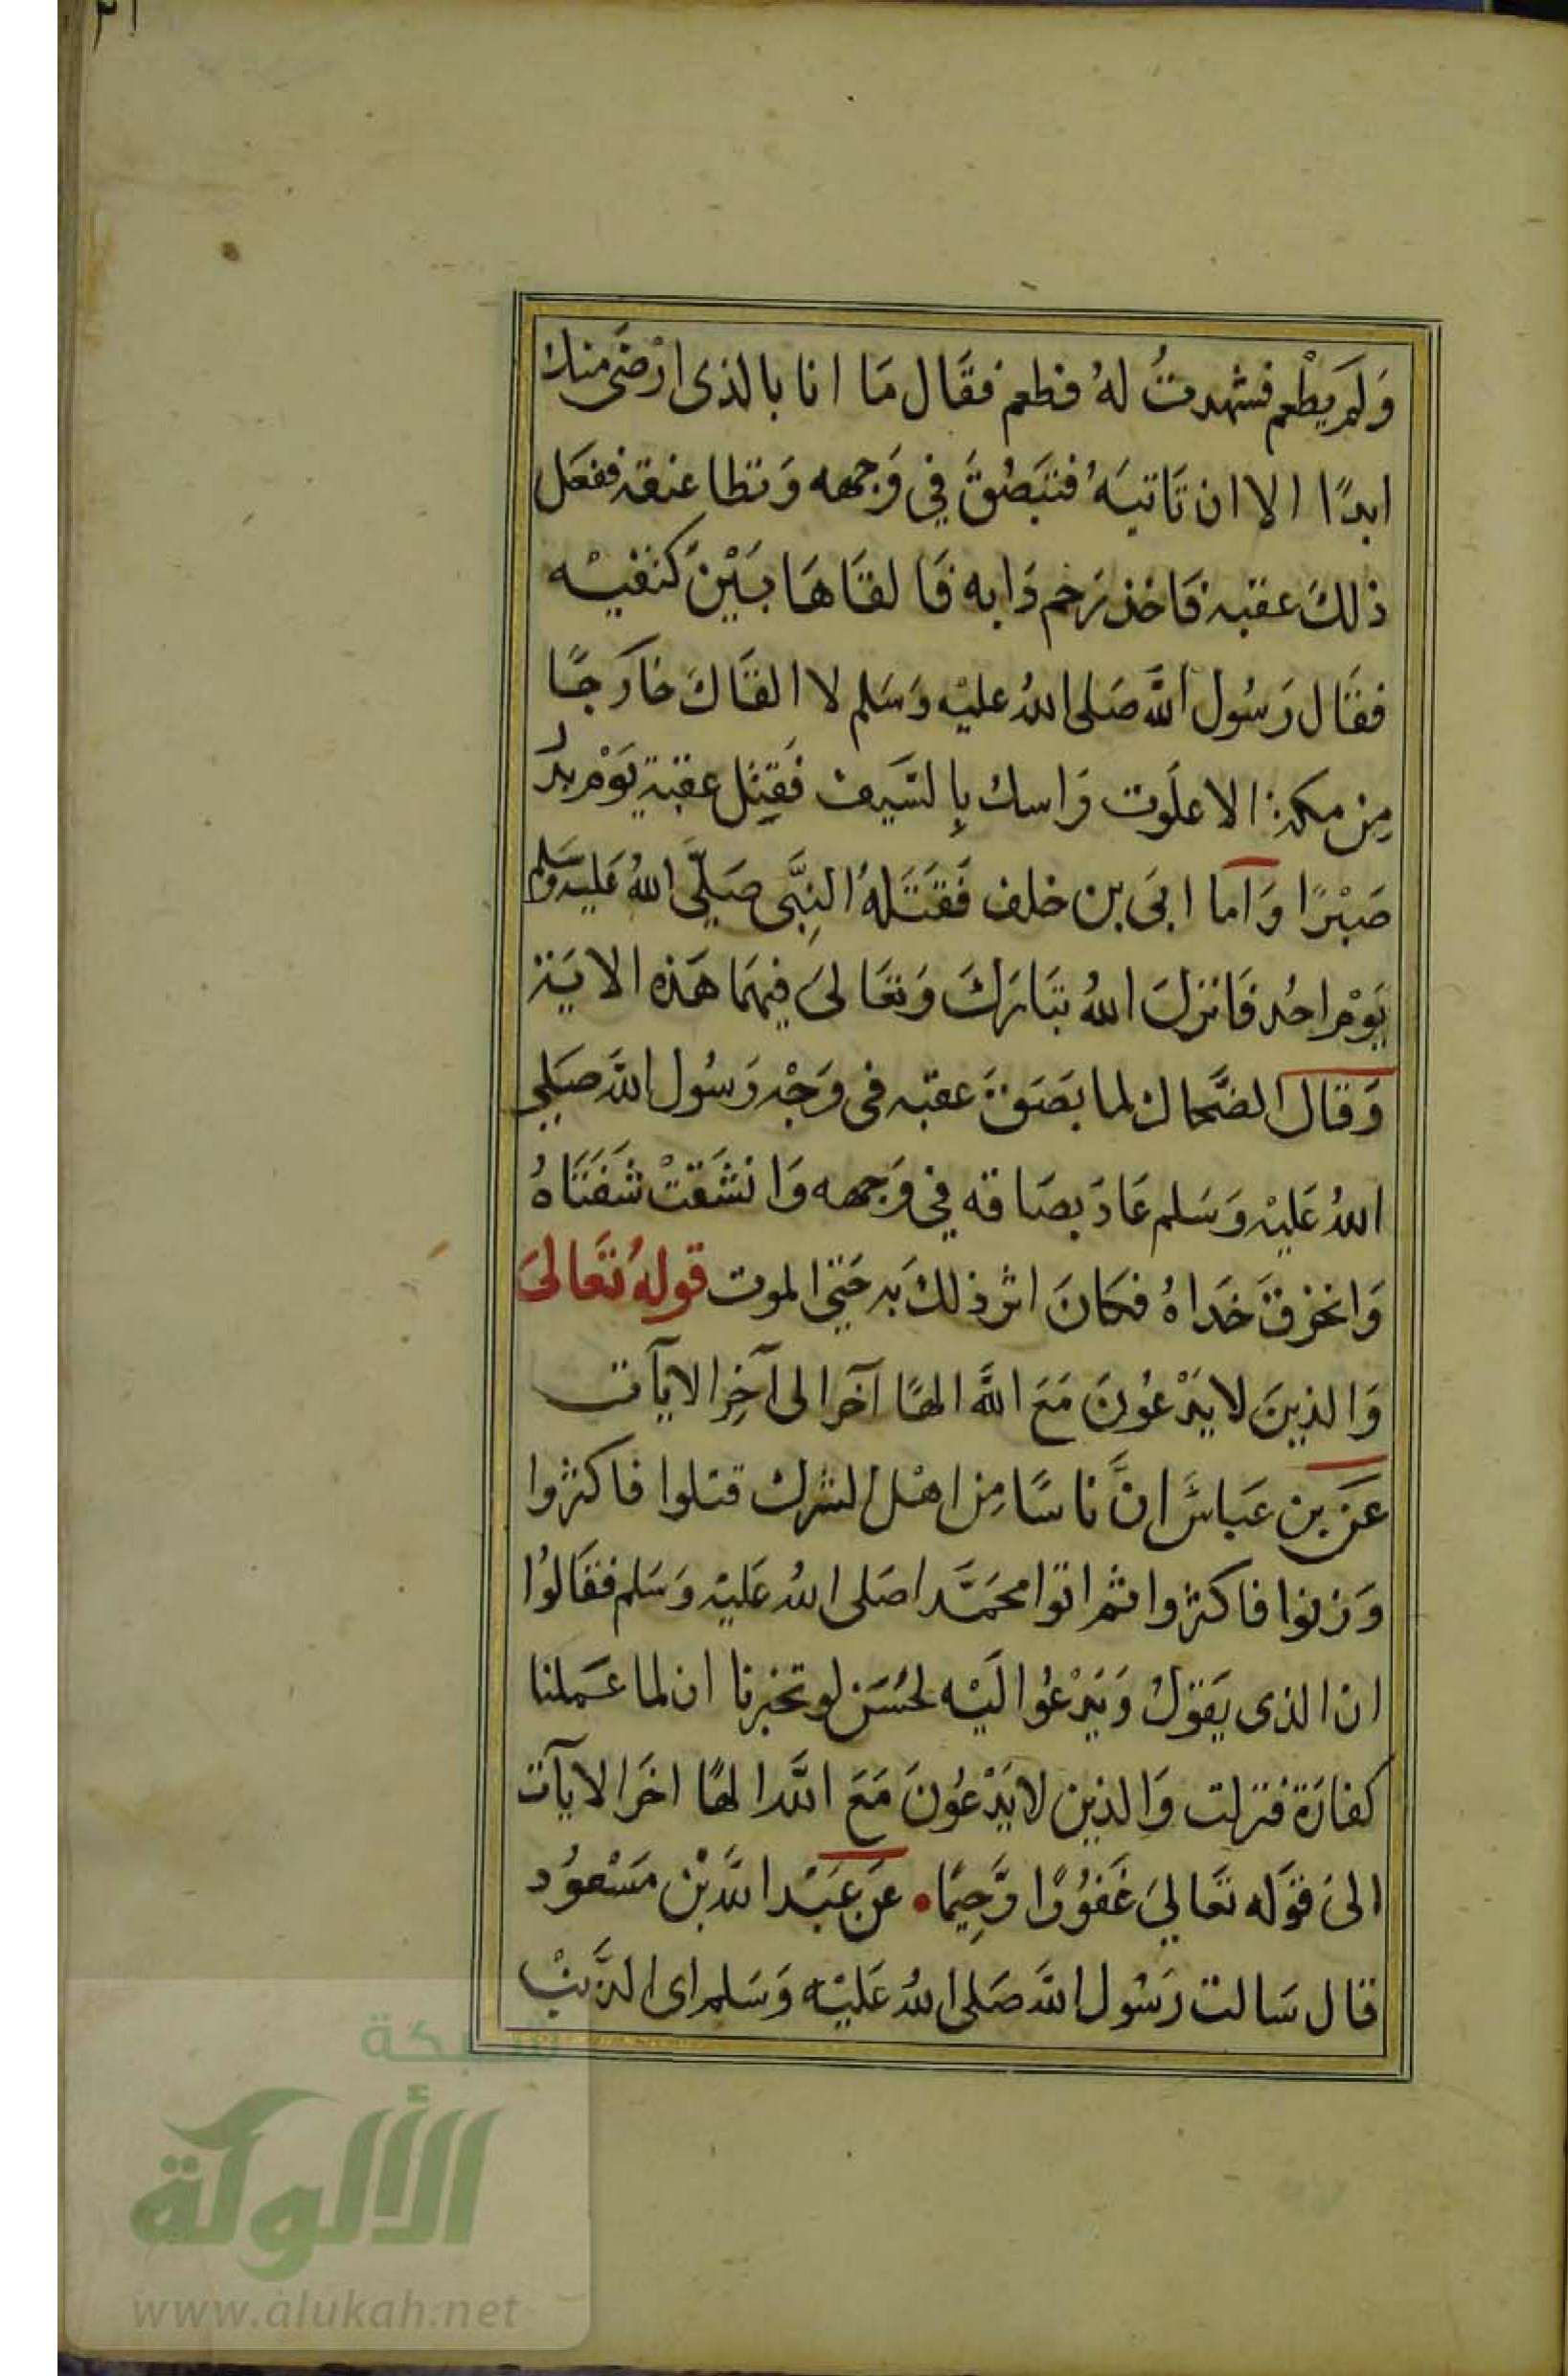 وَلَم يَطْعم فشهدتُ لهُ فطعم فقَال مَا انا بالذى ارْضَى منك
ابدًا الا ان تَاتيَهُ فتبَصُقَ في وَجهه وَتطا عنقه ففعَل
ذلكَ عقبه فَاخذ رَحم دَابه فَالقَاهَا بَيْنَ كتفيْه
فقَال رَسُول اللَّه صَلى اللهُ عليْه وَسَلم لا القَاكَ خَارجًا
مِن مكة الا علَوت رَاسك بِالسَّيف فَقتِل عقبة يَوْم بدر
صَبْرًا وَاما ابَى بن خلف فَقتَلهُ النِبَّى صَلىَّ اللهُ عَليه وَسَلم
يَوْم احُد فَانزلَ اللهُ تبَارَكَ وَتعَالىَ فيهمَا هَذه الايَة
وَقالَ الضَّحاك لما بصَقَ عقبه فى وَجْه رَسُول اللَّه صَلى
اللهُ عَليْه وَسَلم عَادَ بصَاقه في وَجهه وَانشَقتْ شَفتَاهُ
وَانخرقَ خَدَاهُ فكانَ اثر ذلكَ به حَتى الموت قولهُ تعَالىَ
وَالذينَ لا يَدْعُونَ مَعَ اللَّه الهًا آخرا لى آخِر الايآت
عَن بن عَباسَّ انَّ ناسًا مِن اهْل الشرك قتلوا فاكثروا
وَزنوا فاكثروا ثم اتوا محمَّدا صَلى اللهُ عَليْه وَسَلم فقَالوُا
ان الذى يَقولُ وَيَدْعُوا ليْه لحُسَن لو تخبرنا ان لما عَملنا
كفارَة فنزلت وَالذين لا يَدْعُونَ مَعَ اللَّه الهًا اخَر الايآت
الىَ قوَله تعَالىَ غَفوُرًا رَّحِيمًا • عَن عَبْد اللَّه بْن مَسْعوُد
قال سَالت رَسُول اللَّه صَلى اللهُ عَليْه وَسَلم اى الذَّنبْ
شبكة
الألوكة
www.alukah.net